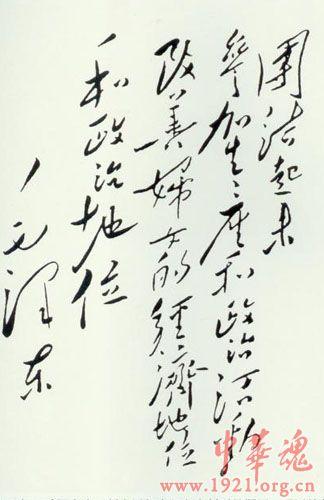 團结起来
參加生產和政治活動
改善婦女的經濟地位
和政治地位
毛泽东
中華魂
www.1921.org.cn